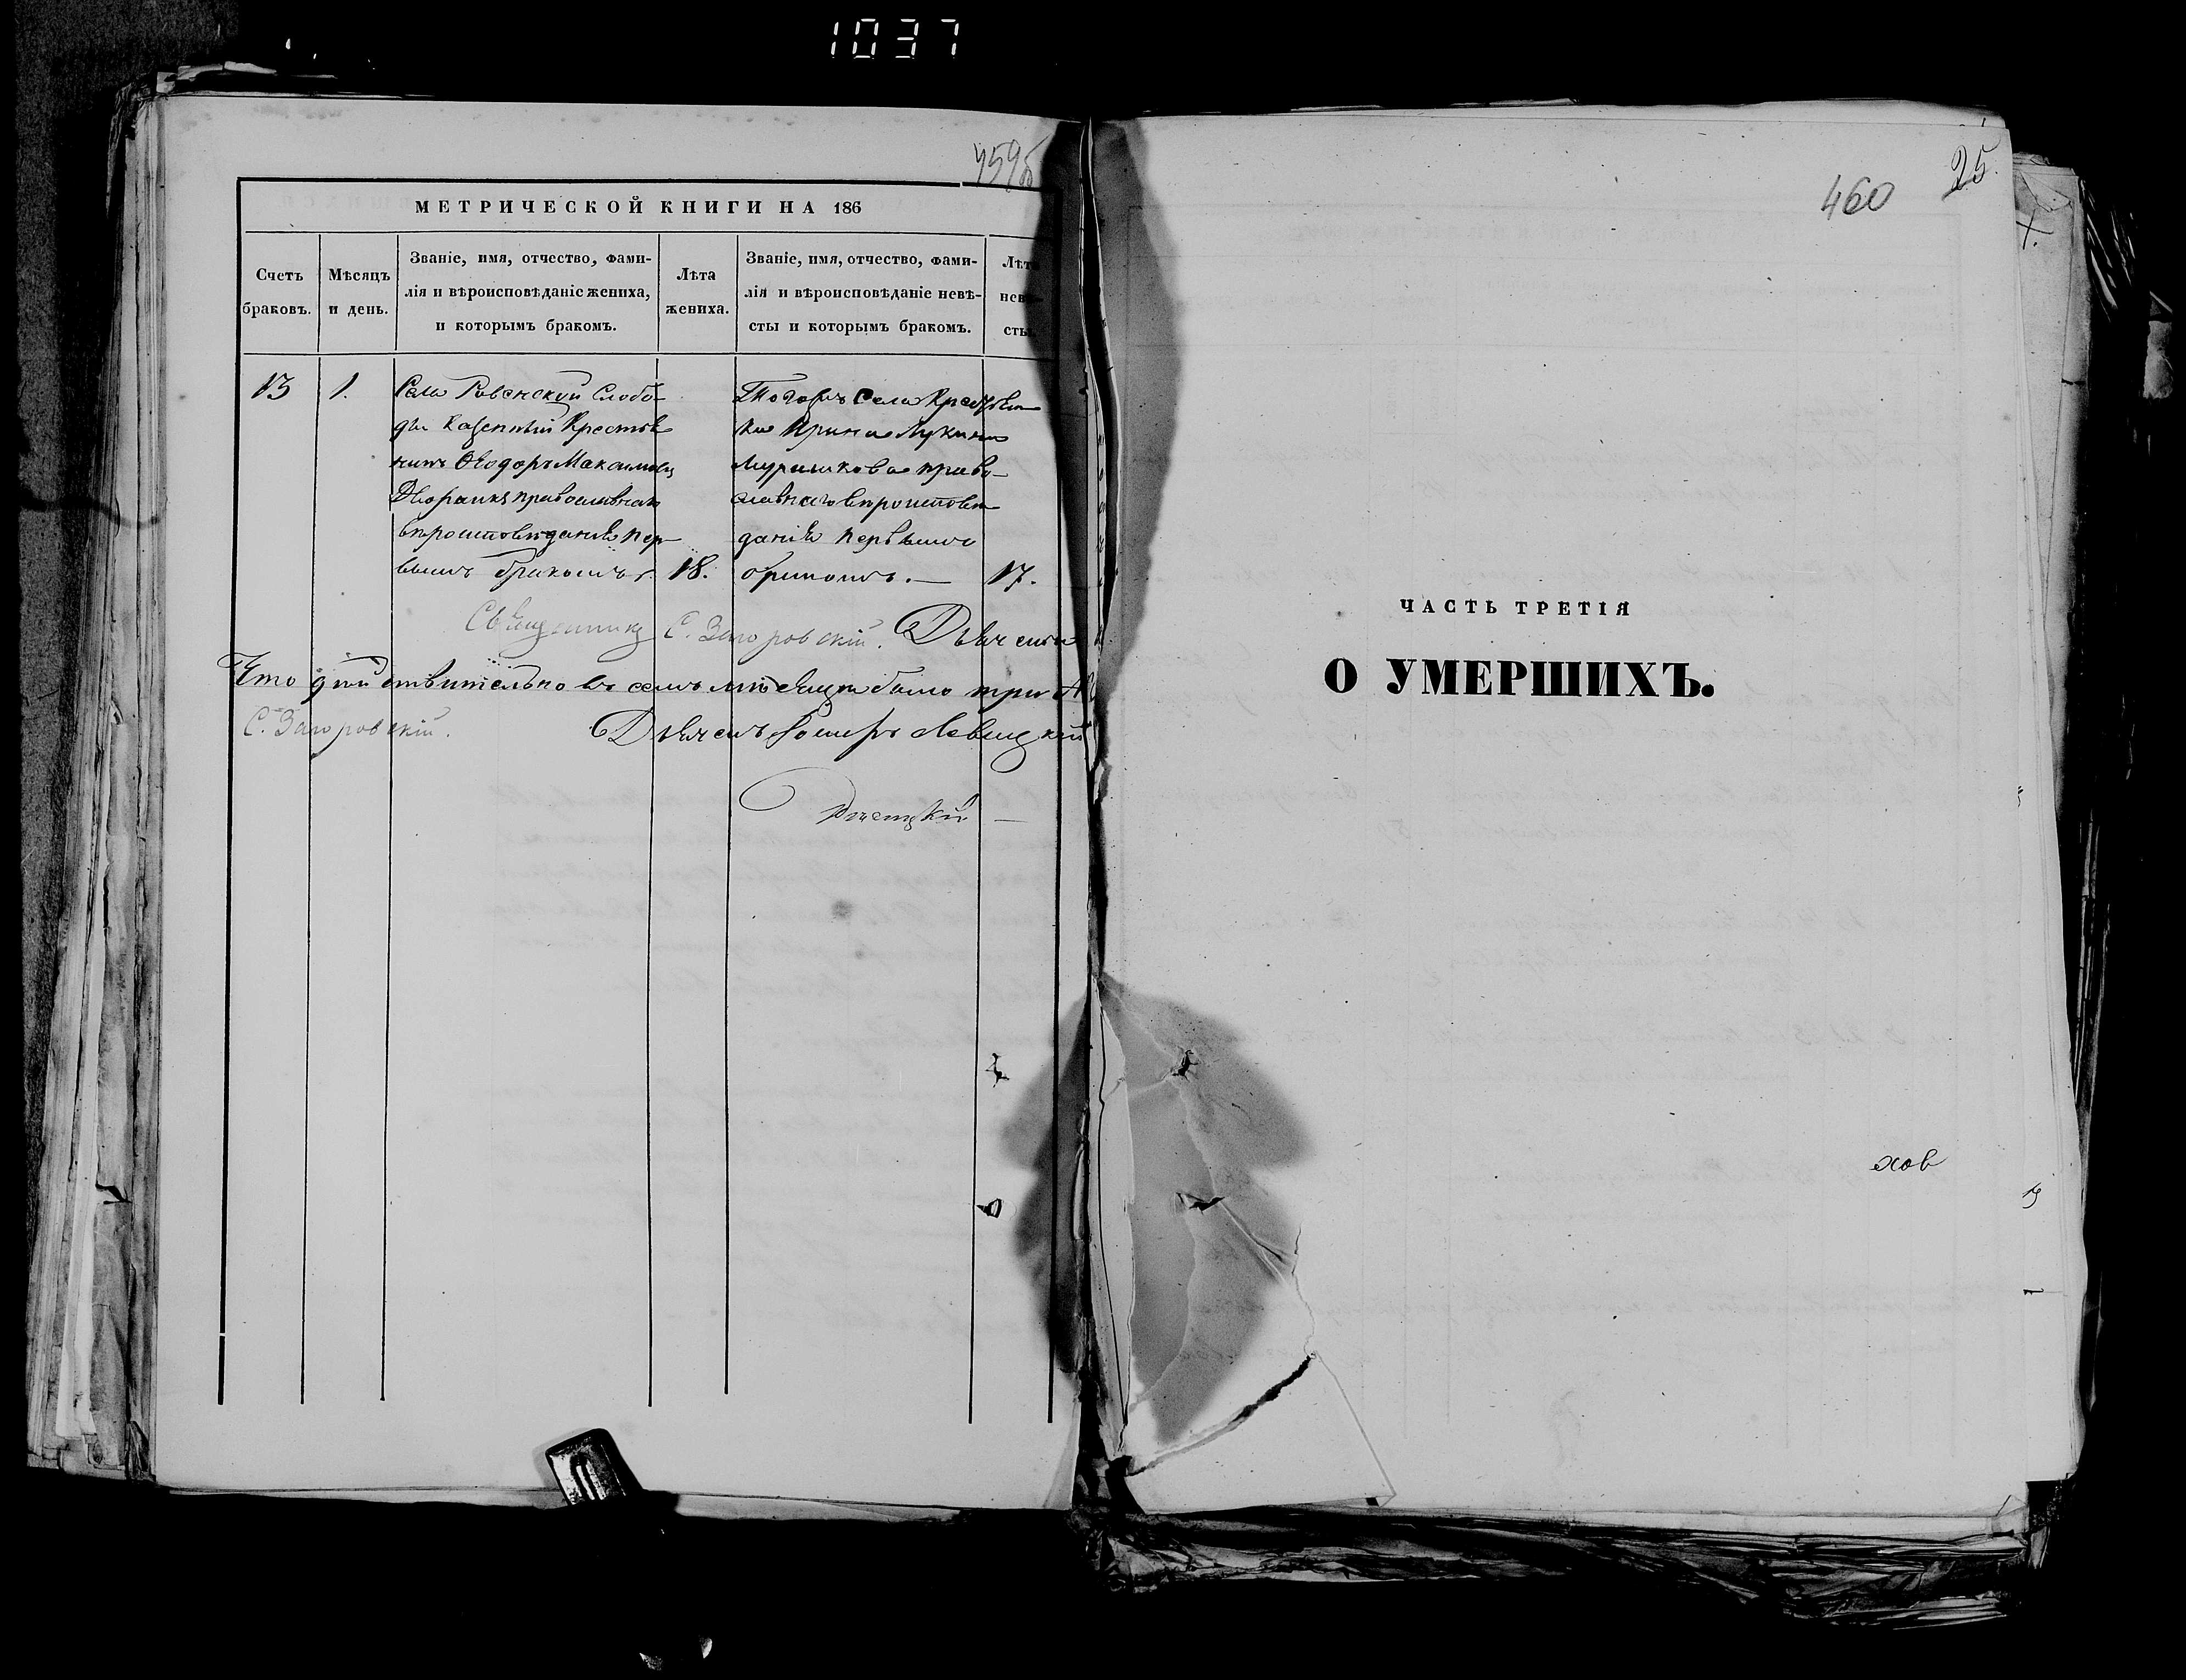 1037
459об
МЕТРИЧЕСКОЙ КНИГИ НА 186
Счетъ браковъ.
Мѣсяцъ и день.
Званіе, имя, отчество, фами-
лія и вѣроисповѣданіе жениха,
и которымъ бракомъ.
Лѣта жениха.
Званіе, имя, отчество, фами-
лія и вѣроисповѣданіе невѣ-
сты и которымъ бракомъ.
Лѣт
нев
сты
13
1.
Села Ровенской Слобо-
ды Казенный Крестья
нинъ Ѳеодоръ Максимовъ
Дворникъ православнаго
вѣроисповѣданія пер-
вымъ бракомъ.
18.
Тогожъ Села Крестьян
ка Ирина Лукина
православнаго вѣроисповѣ
данія первымъ
бракомъ.
17.
Священникъ С. Загоровскій. Дьячекъ
Что дѣйствительно въ семъ мѣсяцѣ было три
С. Загоровскій.
Дьячекъ Левицкій
460
25.
ЧАСТЬ ТРЕТІЯ
О УМЕРШИХЪ.
хов